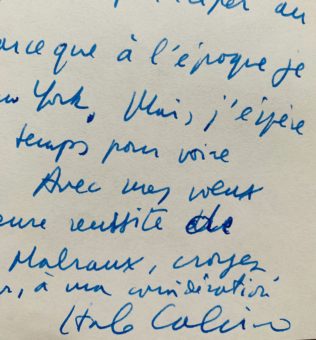 participer au
parce que à l'époque je
New York. Mais, j'espère
temps pour votre
Avec mes voeux
reussite de
Malraux, croyez
, à ma considération
Italo Calvino